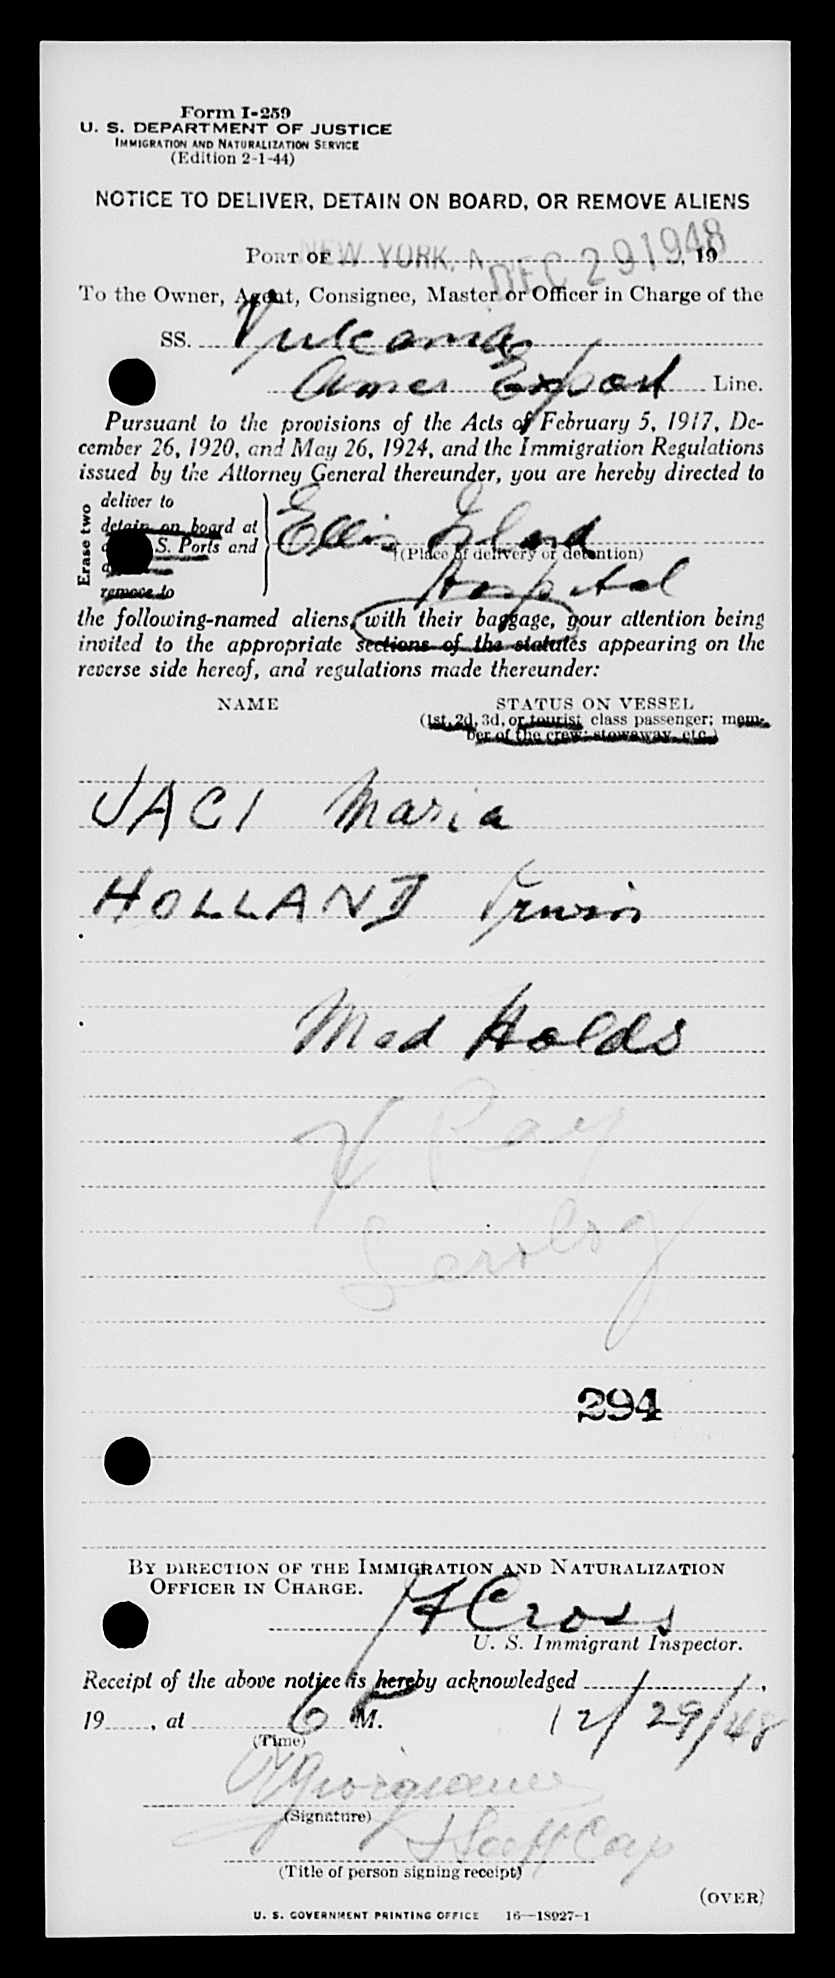 Form I-259
U. S. DEPARTMENT OF JUSTICE
IMMIGRATION AND NATURALIZATION SERVICE
(Edition 2-1-44)
NOTICE TO DELIVER, DETAIN ON BOARD, OR REMOVE ALIENS
PORT OF NEW YORK, DEC 29 1948, 19
To the Owner, Agent, Consignee, Master or Officer in Charge of the
SS. Vulcania
Amer Export Line.
Pursuant to the provisions of the Acts of February 5, 1917, De-
cember 26, 1920, and May 26, 1924, and the Immigration Regulations
issued by the Attorney General thereunder, you are hereby directed to
Erase two
deliver to
detain on board at
S. Ports and
remove to
Ellis Island
(Place of delivery or detention)
Hospital
the following-named aliens, with their baggage, your attention being
invited to the appropriate sections of the statutes appearing on the
reverse side hereof, and regulations made thereunder:
NAME STATUS ON VESSEL
(1st, 2d, 3d, or tourist class passenger; mem-
ber of the crew; stowaway, etc.)
JACI Maria
HOLLAND Irwin
Med Holds
X Ray
Serology
294
BY DIRECTION OF THE IMMIGRATION AND NATURALIZATION
OFFICER IN CHARGE.
Cross
U. S. Immigrant Inspector.
Receipt of the above notice is hereby acknowledged
19 , at 6 P M. 12/29/48
(Time)
(Signature)
Staff Cap
(Title of person signing receipt)
(OVER)
U. S. GOVERNMENT PRINTING OFFICE 16—18927-1